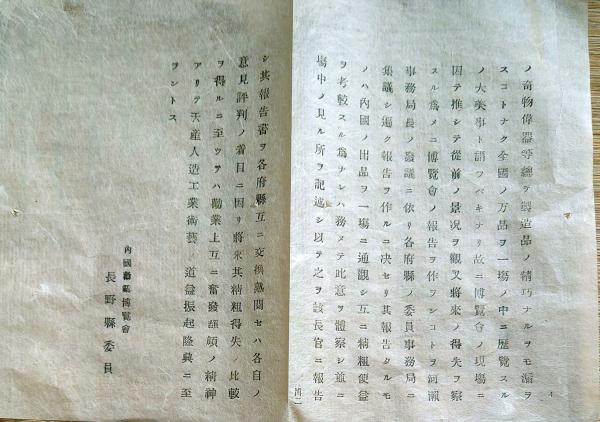 ノ奇物偉器等總テ製造品ノ精巧ナルヲモ洩ヲ
スコトナク全國ノ万品ヲ一塲ノ中ニ歴覽スル
ノ大美事ト謂フベキナリ故ニ博覽會ノ現塲ニ
因テ推シテ從前ノ景况ヲ觀又將來ノ得失ヲ察
スル爲メニ博覽會ノ報告ヲ作ヲンコトヲ河瀬
事務局長ノ發議ニ依リ各府縣ノ委員事務局ニ
集議シ遍ク報告ヲ作ルニ决セリ其報告タルモ
ノハ內國ノ出品ヲ一塲ニ通觀シ互ニ精粗便益
ヲ考較スル爲ナレハ務メテ此意ヲ體察シ並ニ
塲中ノ見ル所ヲ記述シ以テ之ヲ該長官ニ報告
シ其報告書ヲ各府縣互ニ交換熟閱セハ各自ノ
意見評判ノ着目ニ因リ將來其精粗得失ノ比較
ヲ得ルニ至ツテハ勸業上互ニ奮發顧頓ノ精神
アリテ天産人造工業術藝 道益振起隆興ニ至
ヲントス
內國勸業博覽會
長野縣委員